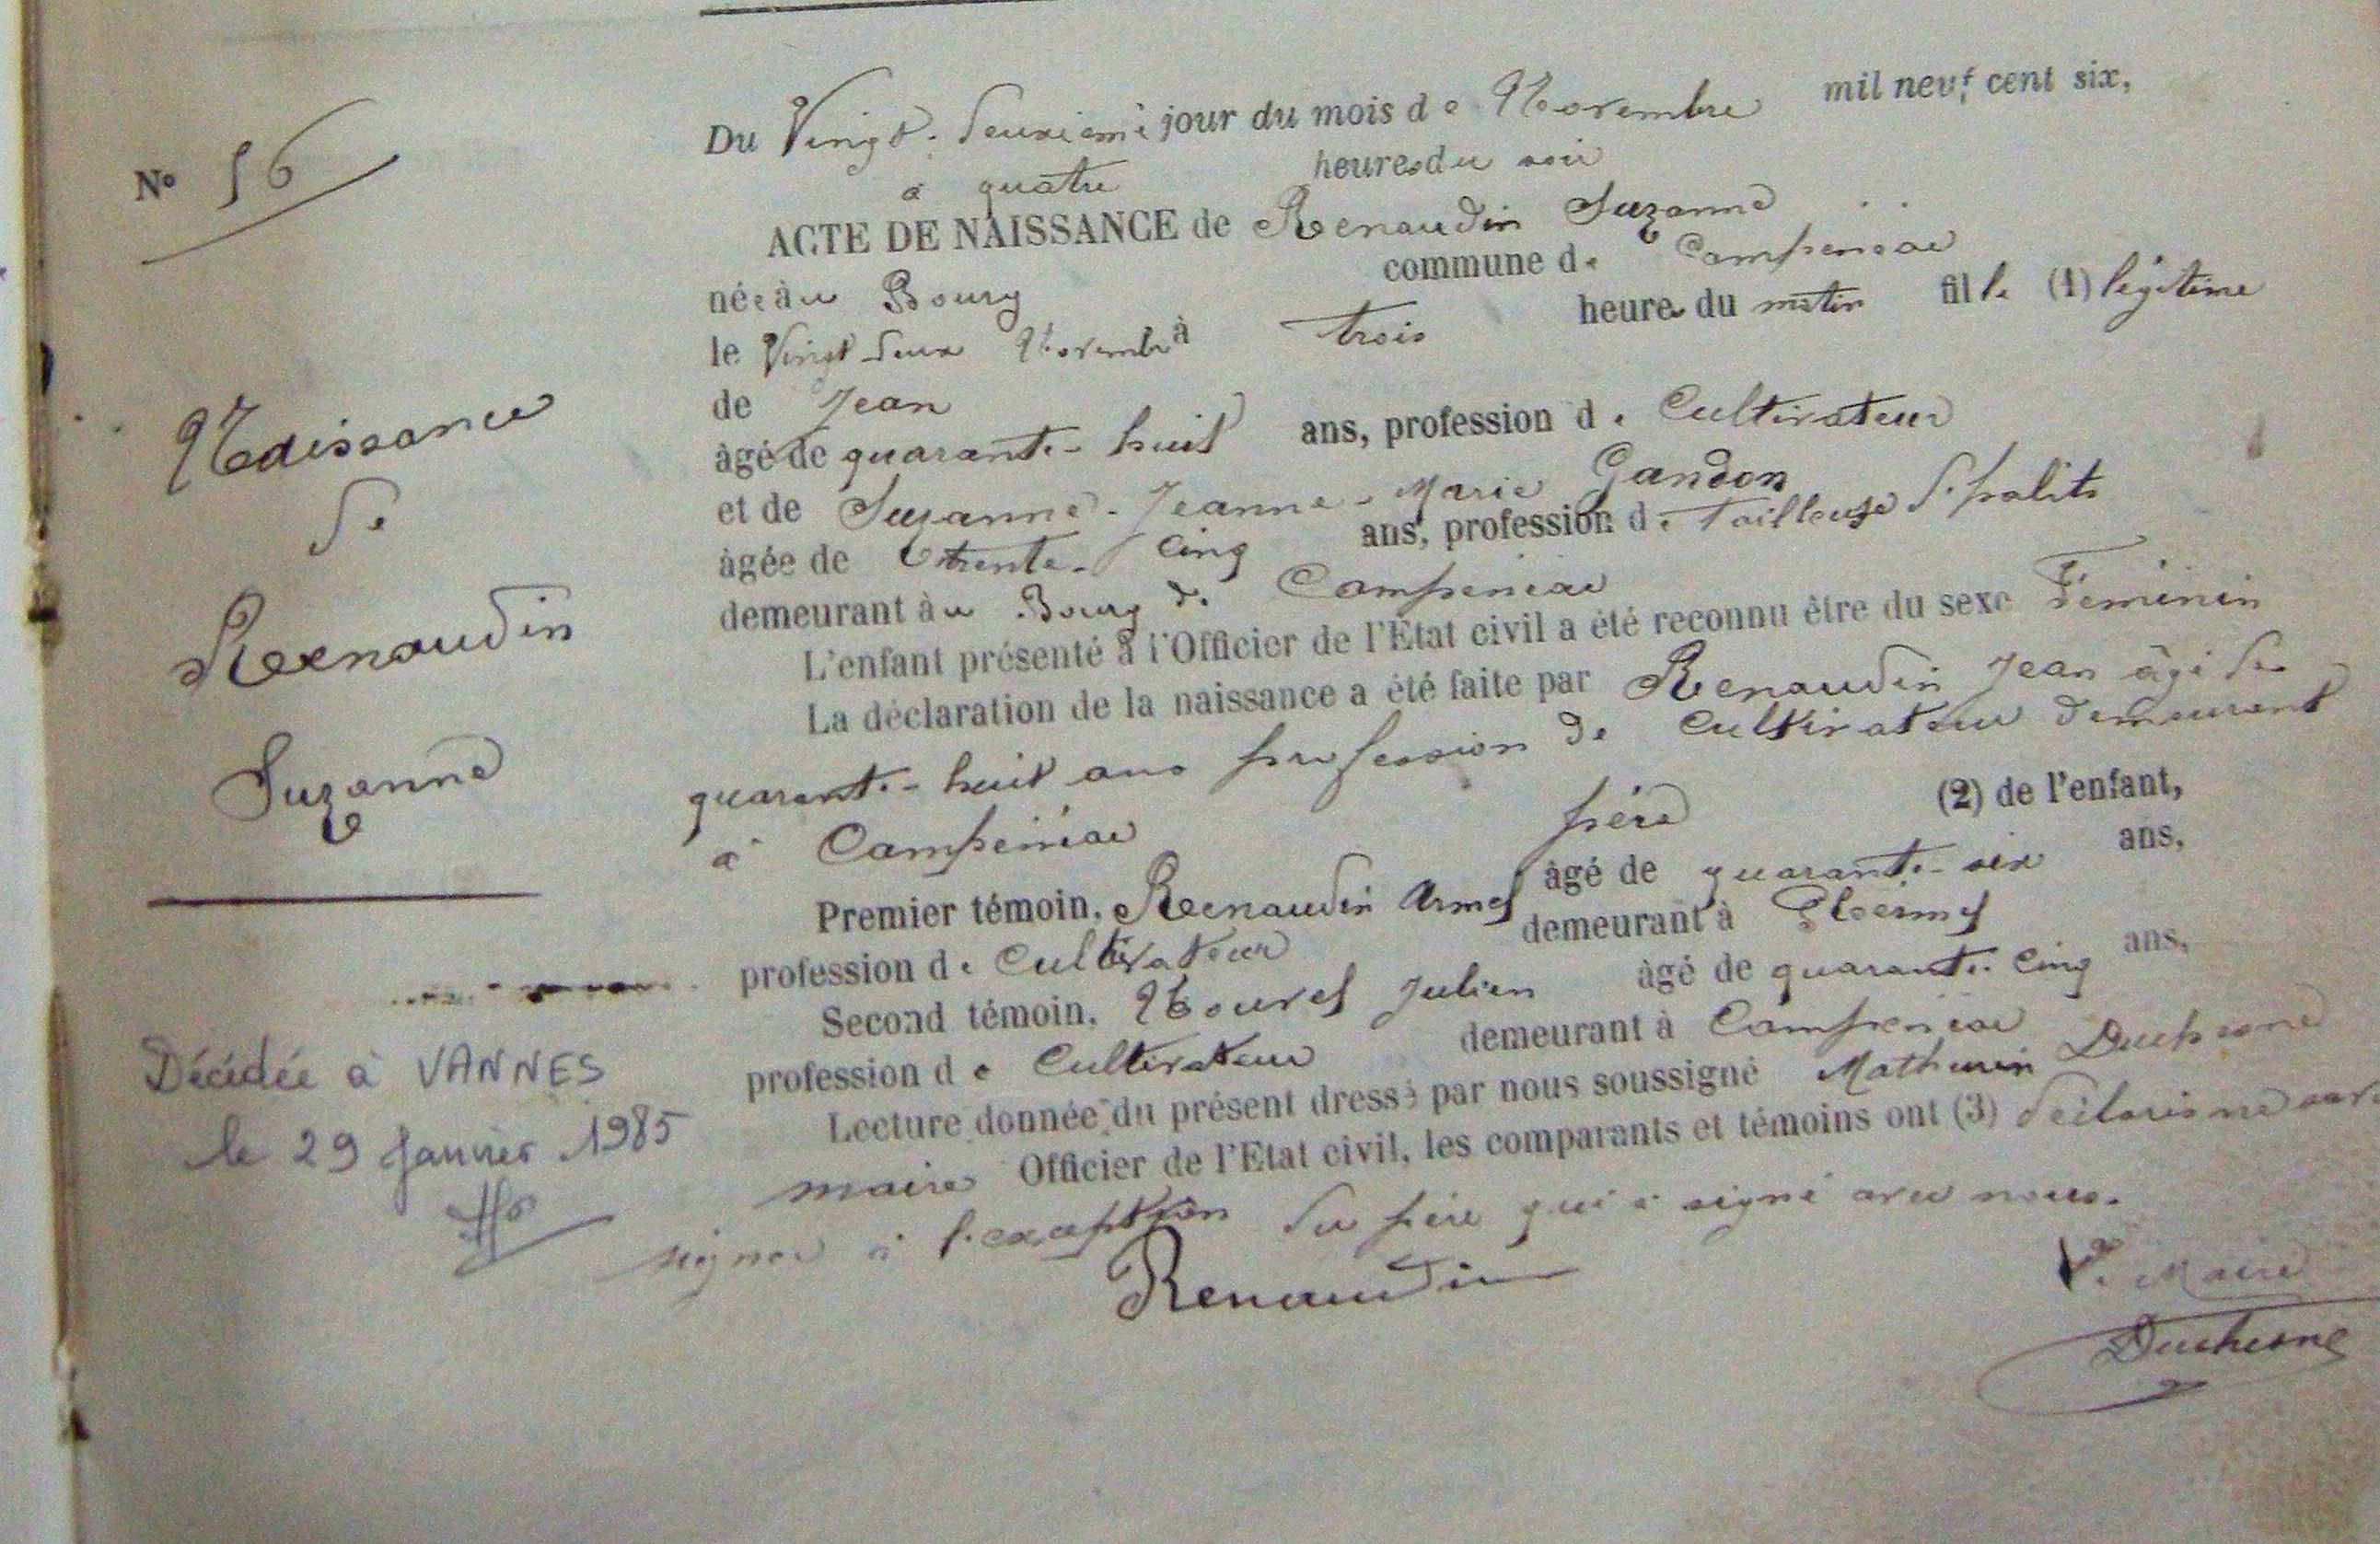 N° 56
Naissance
de
Renaudin
Suzanne
Décédée à VANNES
le 29 Janvier 1985
Du Vingt-deuxième jour du mois de Novembre mil neuf cent six,
à quatre heures du soir
ACTE DE NAISSANCE de Renaudin Suzanne
née au Bourg commune de Campénéac
le Vingt-deux Novembre à trois heures du matin fille (1) légitime
de Jean
âgé de quarante-huit ans, profession de Cultivateur
et de Suzanne-Jeanne-Marie Gandon
âgée de trente-cinq ans, profession de Tailleuse d'habits
demeurant au Bourg de Campénéac
L'enfant présenté à l'Officier de l'État civil a été reconnu être du sexe Féminin
La déclaration de la naissance a été faite par Renaudin Jean âgé de
quarante-huit ans profession de Cultivateur demeurant
à Campénéac père (2) de l'enfant,
Premier témoin, Renaudin Armel âgé de quarante-six ans,
profession de Cultivateur demeurant à Ploërmel
Second témoin, Nouvel Julien âgé de quarante-cinq ans,
profession de Cultivateur demeurant à Campénéac
Lecture donnée du présent dressé par nous soussigné Mathurin Duchesne
maire Officier de l'Etat civil, les comparants et témoins ont (3) déclaré ne savoir
signer à l'exception du père qui a signé avec nous.
Renaudin
Le Maire
Duchesne